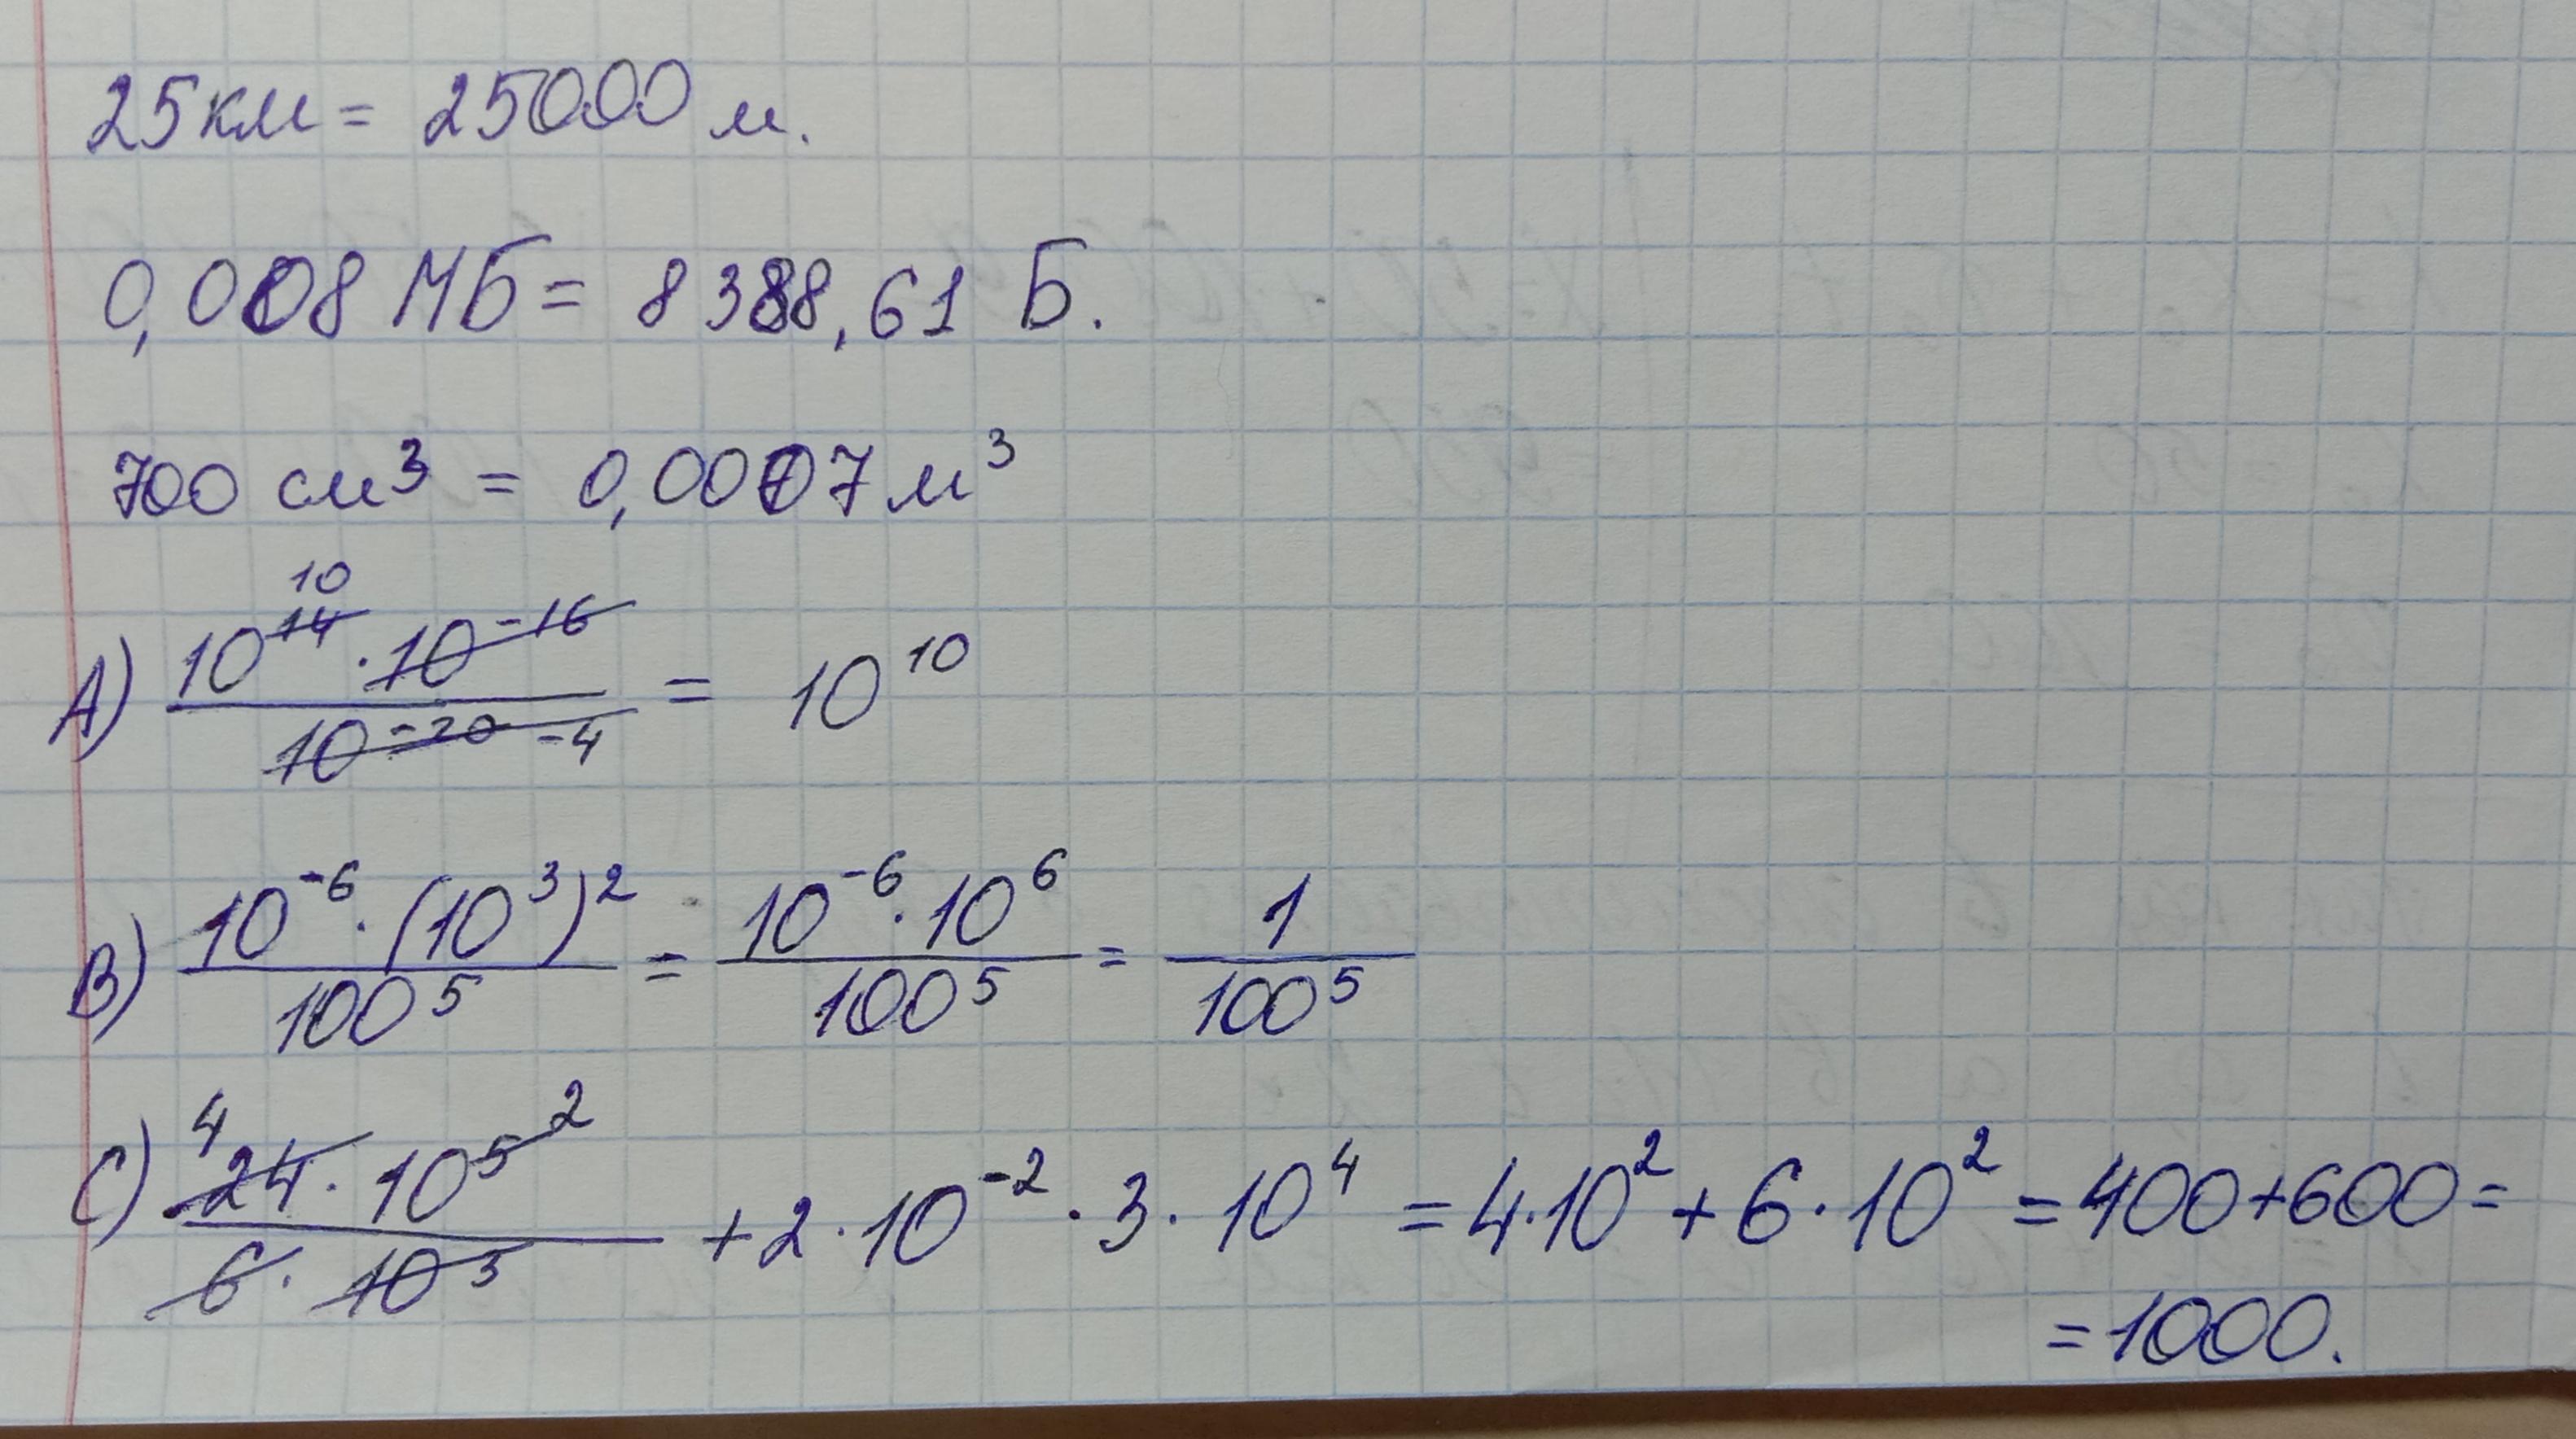 25км = 25000 м.
0,008 МБ = 8388,61 Б.
700 см³ = 0,0007 м³
A) (10^14 10 · 10^-16) / (10^-20 -4) = 10^10
B) (10^-6 · (10^3)^2) / 100^5 = (10^-6 · 10^6) / 100^5 = 1 / 100^5
C) (4 24 · 10^5 2) / (6 · 10^3) + 2 · 10^-2 · 3 · 10^4 = 4 · 10^2 + 6 · 10^2 = 400 + 600 =
= 1000.